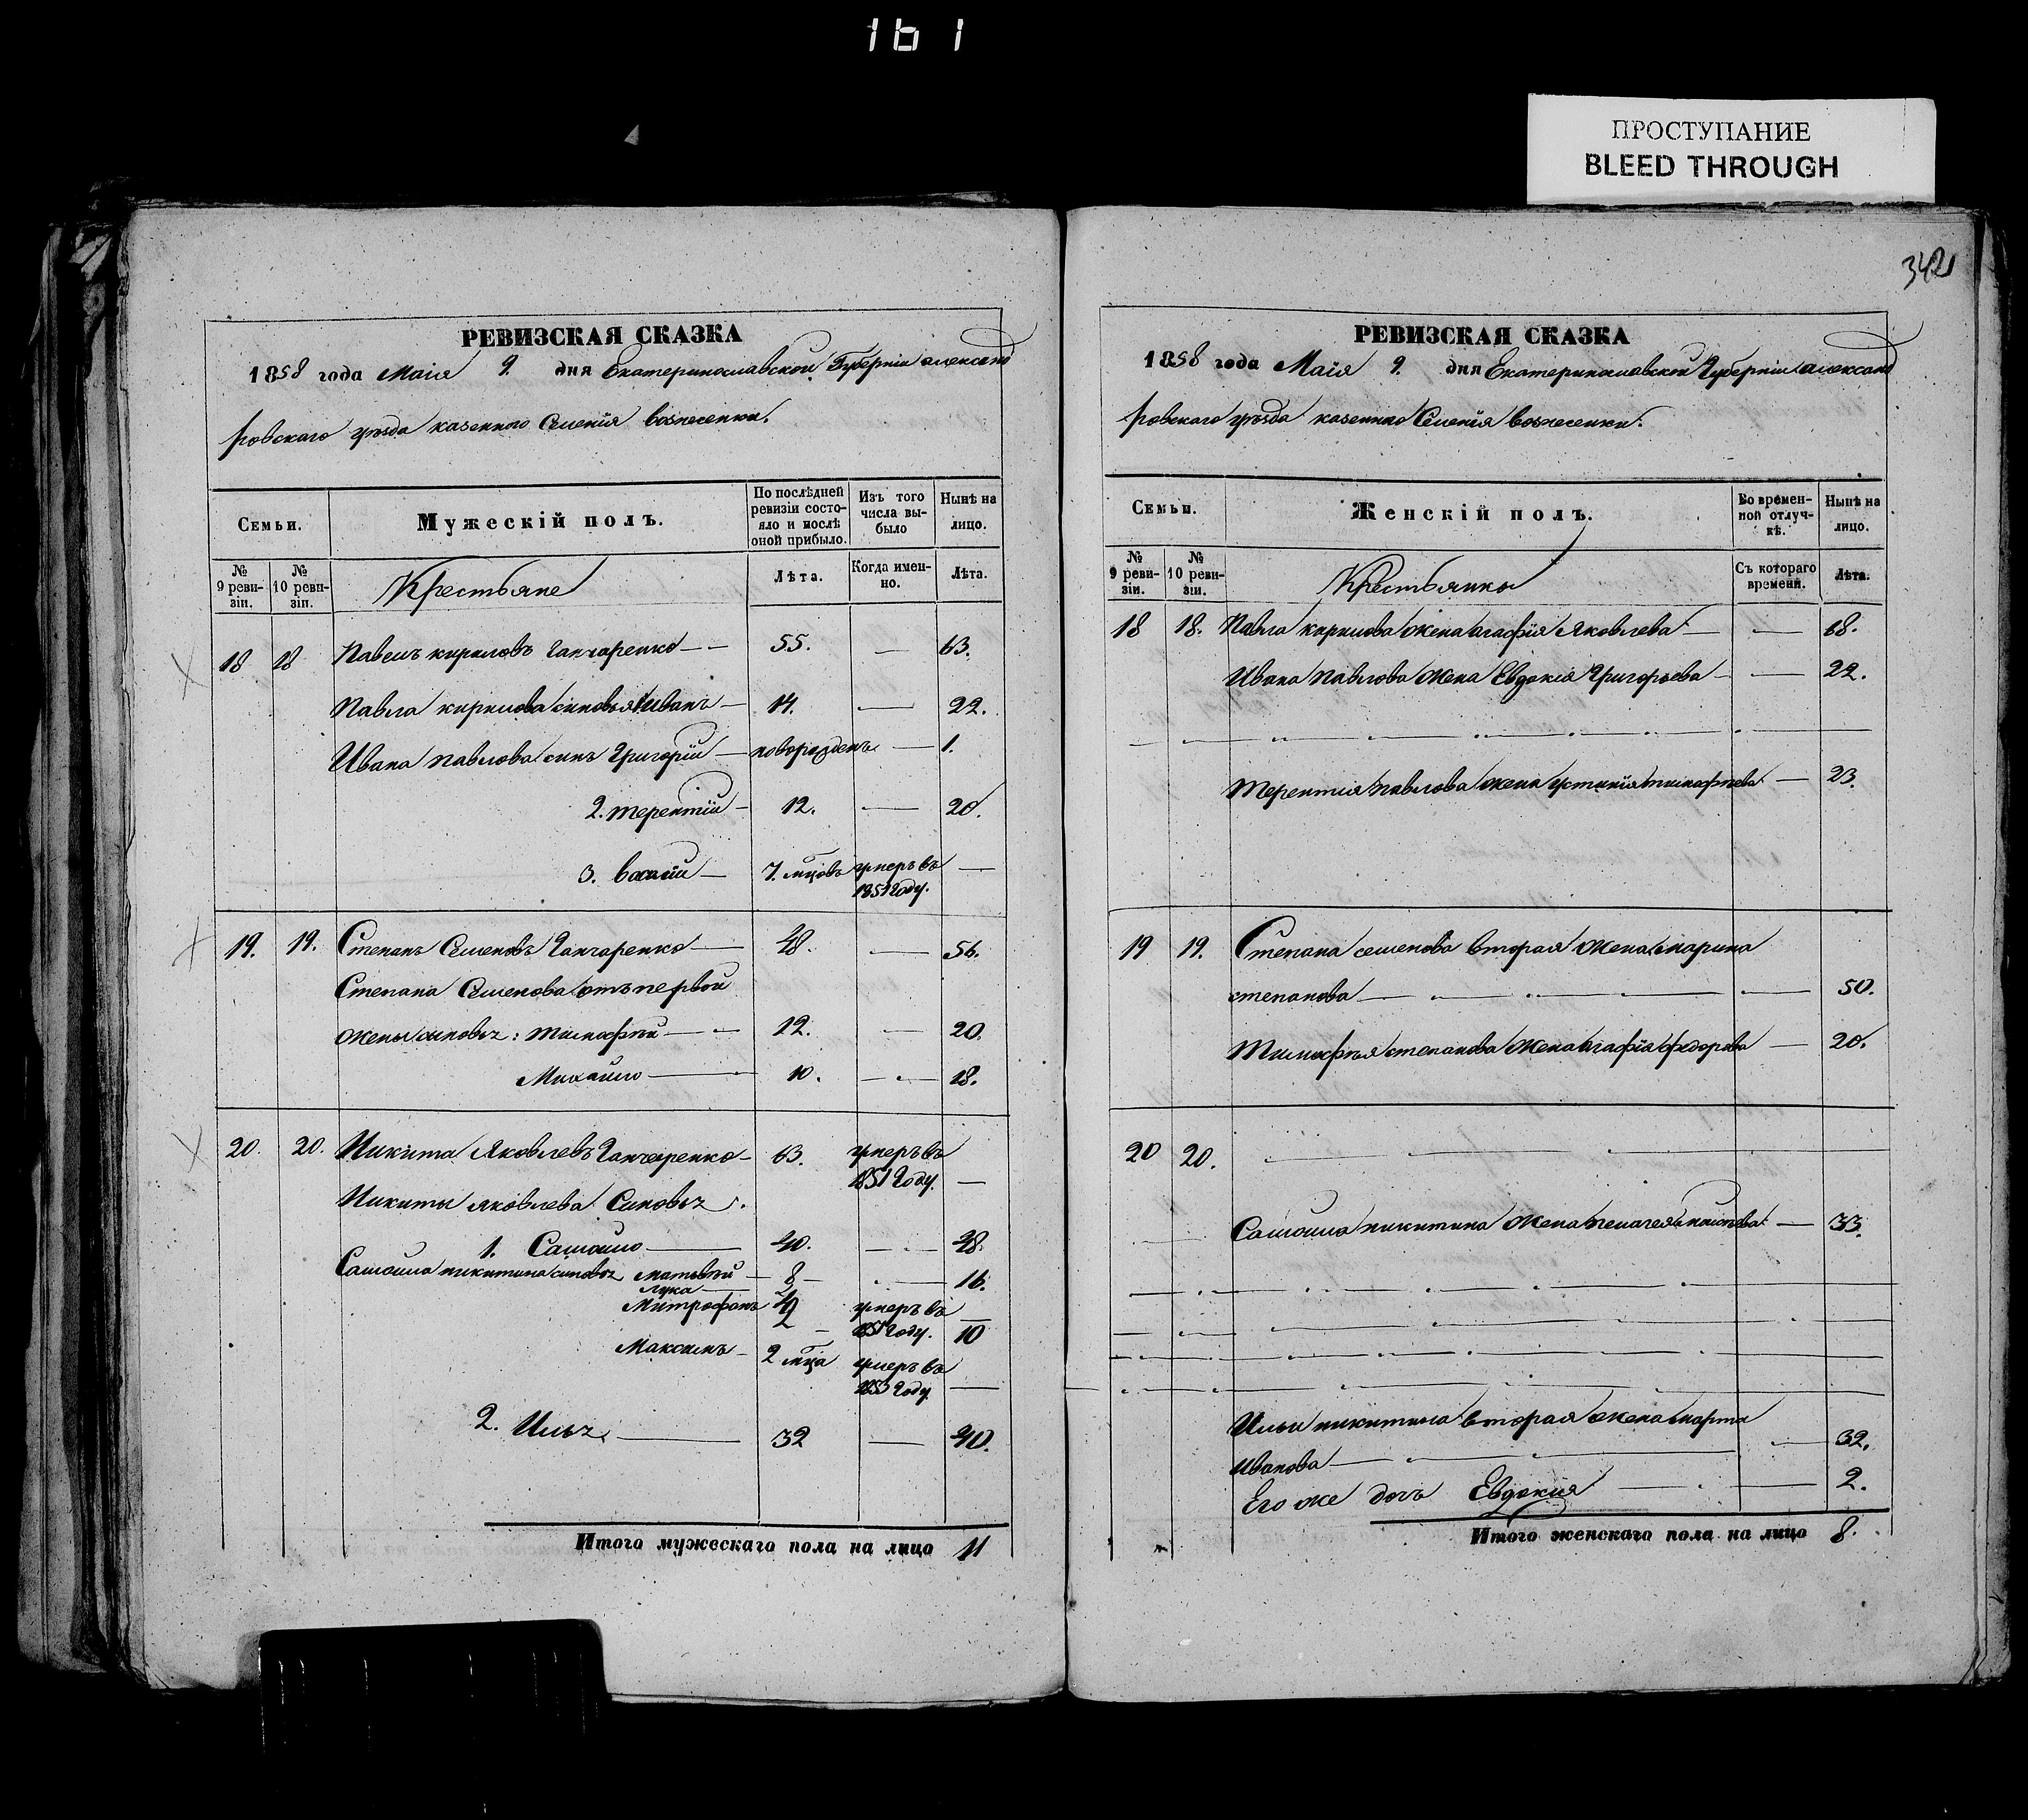 161
ПРОСТУПАНИЕ
BLEED THROUGH
РЕВИЗСКАЯ СКАЗКА
1858 года Маія 9. дня Екатеринославской Губерніи александ
ровского уѣзда казенного Селенія вознесенки.
Семьи.
Мужескій полъ.
По послѣдней ревизіи состояло и послѣ оной прибыло.
Изъ того числа выбыло
Нынѣ на лицо.
№ 9 ревизіи.
№ 10 ревизіи.
Крестьяне
Лѣта.
Когда именно.
Лѣта.
18 18 Павелъ кириловъ Ганчаренко — 55. — 63.
Павла кирилова синовья 1 Иванъ — 14. — 22.
Ивана павлова синъ Григорій — новорожденъ — 1.
2. терентій — 12. — 20.
3. васілій — 7. мцовъ умеръ въ —
1851 Году.
19. 19. Степанъ Семеновъ Ганчаренко — 48. — 56.
Степана Семенова отъ первой
жены синовья: тимофѣй — 12. — 20.
Михайло — 10. — 18.
20. 20. Никита Яковлевъ Ганчаренко — 63. умеръ въ
1851 Году. —
Никиты яковлева Синовья:
1. Самойло — 40. — 48.
Самойла никитина синовья Матвѣй — 8 — 16.
Лука —
Митрофанъ умеръ въ —
2 — 1851 Году. 10
Максимъ — 2 мца умеръ въ
1853 Году. —
2. Илья — 32 — 40.
Итого мужескаго пола на лицо 11
342
РЕВИЗСКАЯ СКАЗКА
1858 года Маія 9. дня Екатеринославской Губерніи александ
ровского уѣзда казенного Селенія вознесенки.
Семьи.
Женскій полъ.
Во временной отлучкѣ.
Нынѣ на лицо.
№ 9 ревизіи.
№ 10 ревизіи.
Крестьянки
Съ котораго времени.
Лѣта.
18 18. Павла кирилова жена агафія Яковлева — — 68.
Ивана павлова жена Евдокія Григорьева — — 22.
терентія павлова жена устинія тимофѣева — 23.
19 19. Степана семенова вторая жена марина
степанова — — 50.
Тимофѣя степанова жена агафія федорова — 20.
20 20.
Самойла никитина жена пелагея — 33.
Ильи никитина вторая жена марта
иванова — — 32.
Его же дочь Евдокия — — 2.
Итого женскаго пола на лицо 8.